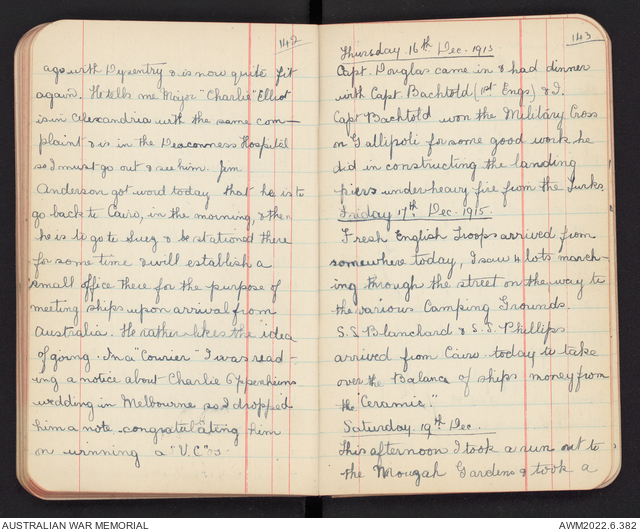 142
ago with Dysentry & is now quite fit
again. He tells me Major "Charlie" Elliot
is in Alexandria with the same com-
plaint & is in the Deaconness Hospital
so I must go out & see him. Jim
Anderson got word today that he is to
go back to Cairo, in the morning, & then
he is to go to Suez & be stationed there
for some time & will establish a
small office there for the purpose of
meeting ships upon arrival from
Australia. He rather likes the idea
of going. In a "Courier" I was read-
ing a notice about Charlie
wedding in Melbourne so I dropped
him a note congratulating him
on winning a "V.C"
143
Thursday 16th Dec. 1915
Capt. Douglas came in & had dinner
with Capt. Bachtold (1st Engs) & I.
Capt Bachtold won the Military Cross
on Gallipoli for some good work he
did in constructing the landing
piers under heavy fire from the Turks.
Friday 17th Dec. 1915.
Fresh English Troops arrived from
somewhere today, I saw 4 lots march-
ing through the street on the way to
the various Camping Grounds.
S.S. Blanchard & S.S. Phillips
arrived from Cairo today to take
over the Balance of ships money from
the "Ceramic."
Saturday. 19th Dec.
This afternoon I took a run out to
the Nouzah Gardens & took a
AUSTRALIAN WAR MEMORIAL
AWM2022.6.382